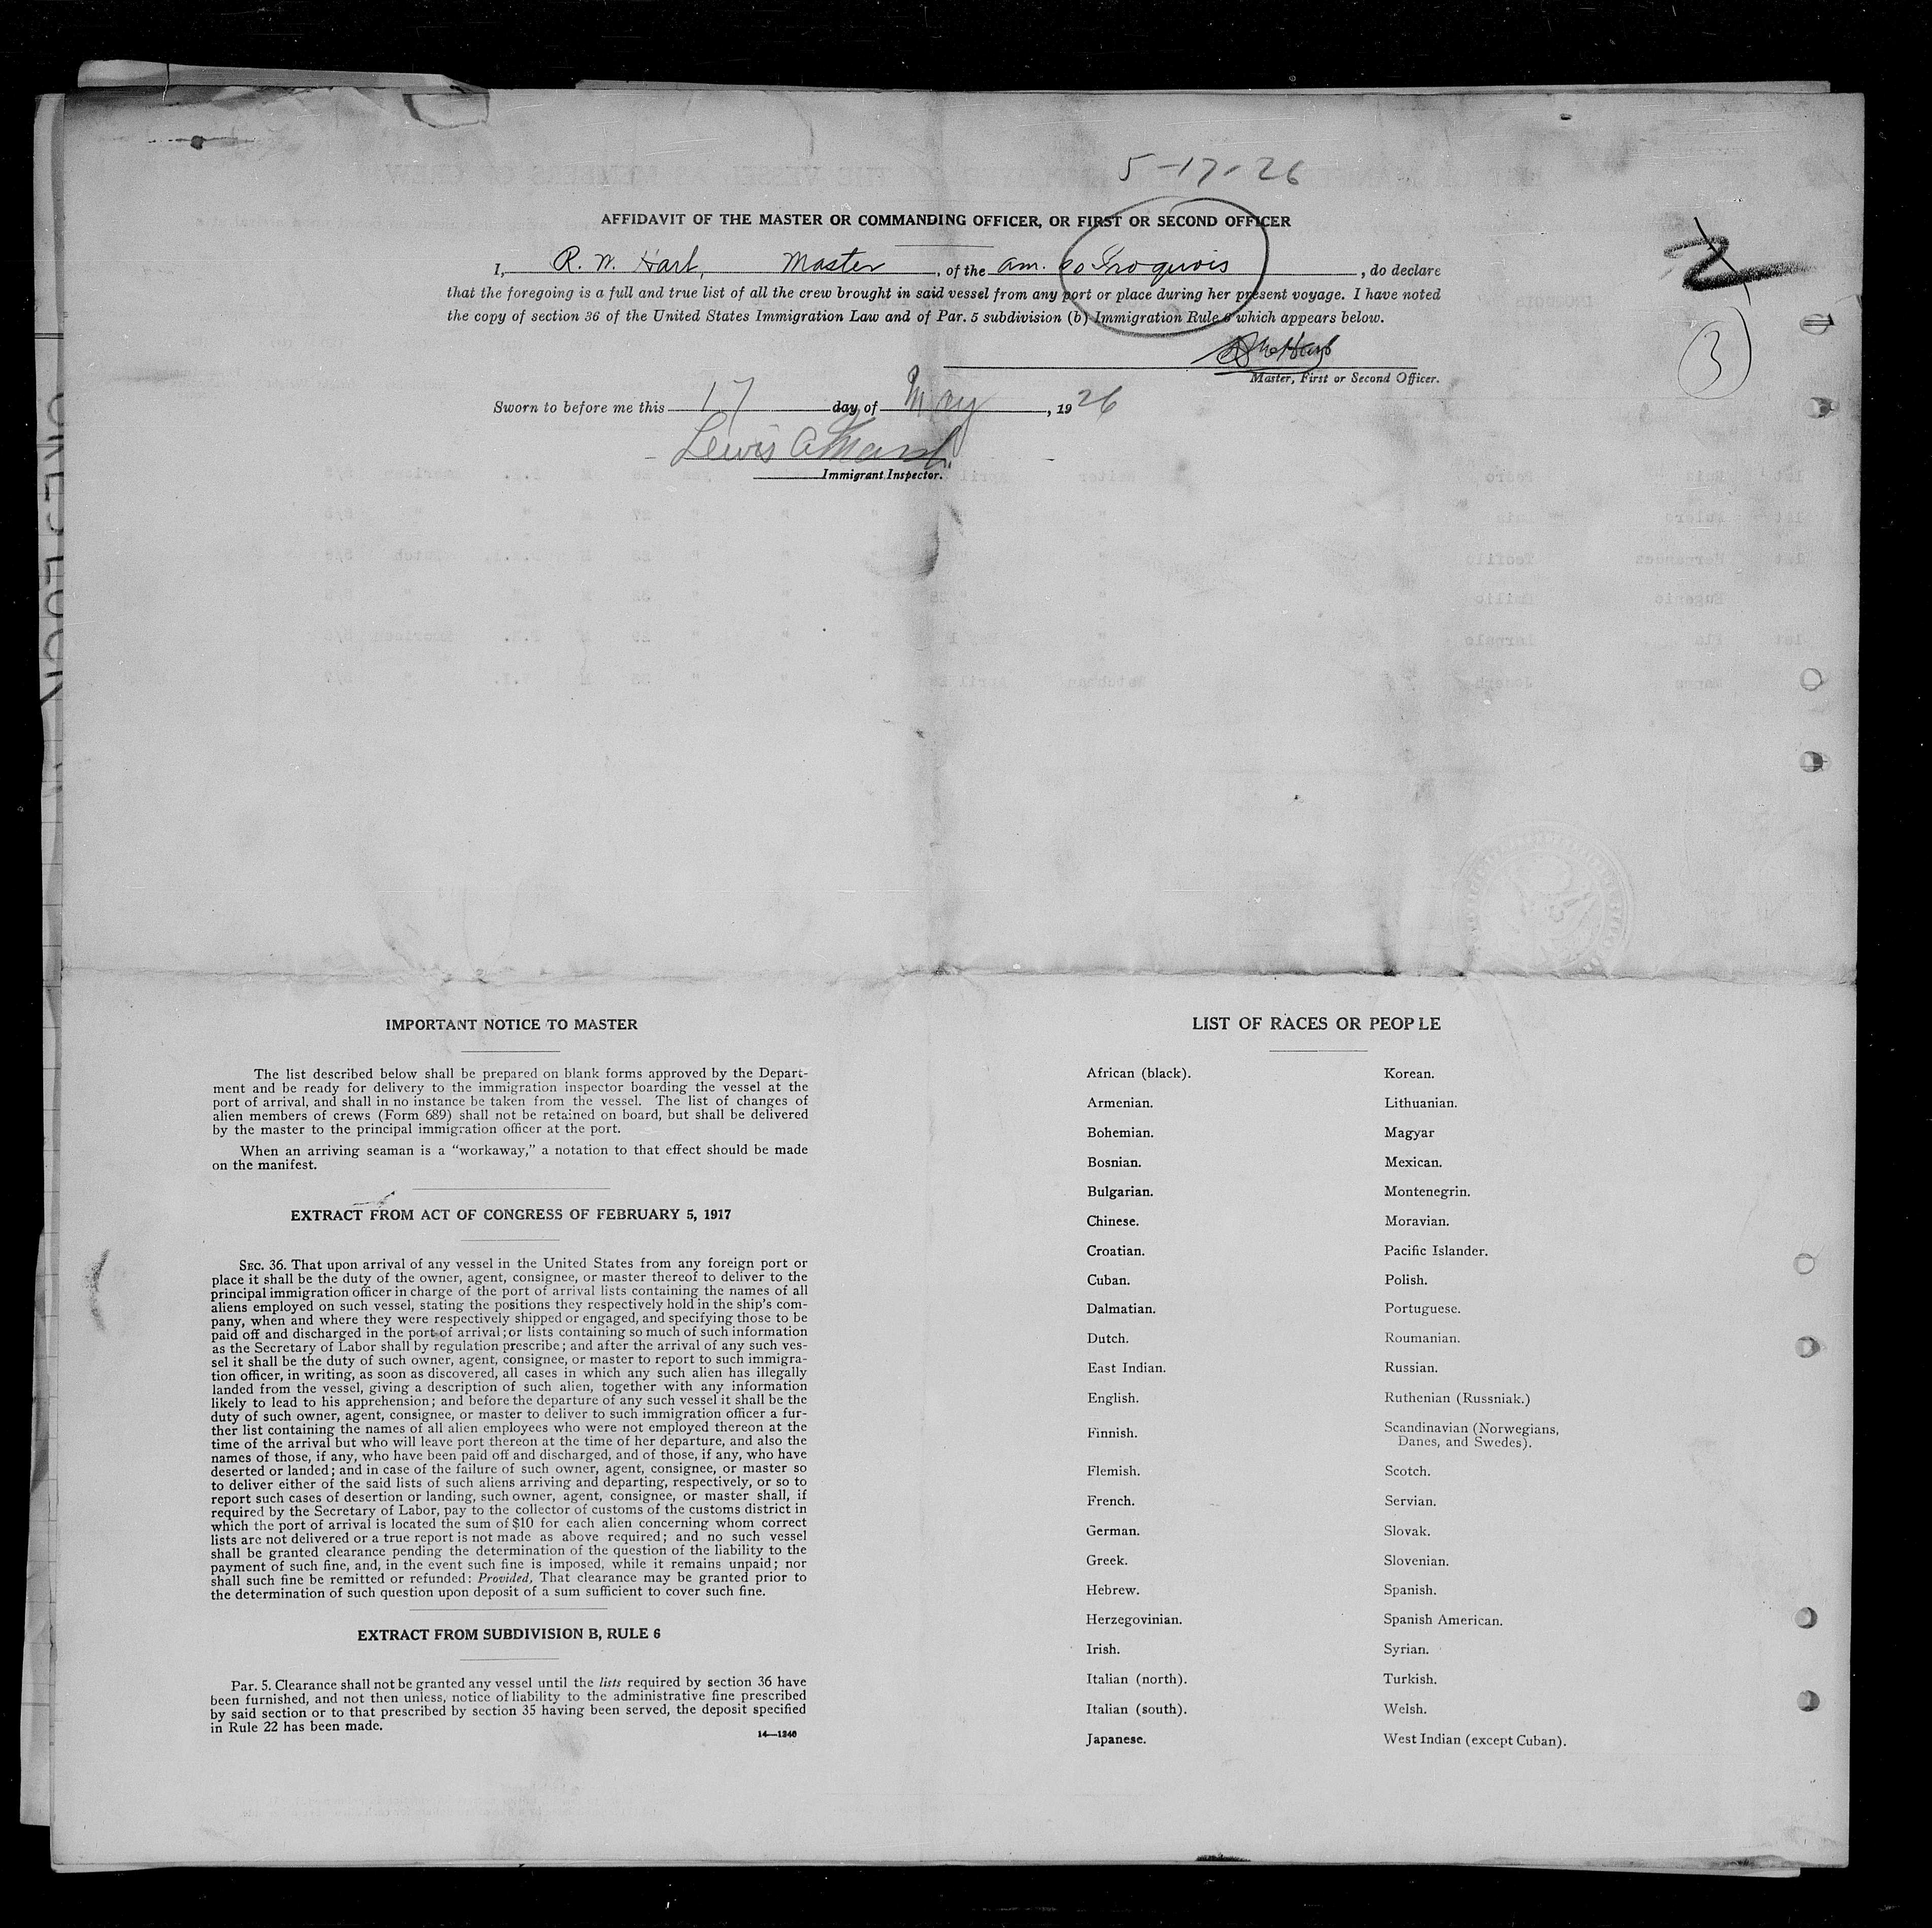 5-17-26
AFFIDAVIT OF THE MASTER OR COMMANDING OFFICER, OR FIRST OR SECOND OFFICER
I, R. W. Hart, Master, of the am. SS Iroquois, do declare
that the foregoing is a full and true list of all the crew brought in said vessel from any port or place during her present voyage. I have noted
the copy of section 36 of the United States Immigration Law and of Par. 5 subdivision (b) Immigration Rule 6 which appears below.
2
3
Master, First or Second Officer.
Sworn to before me this 17 day of May, 1926
Lewis A
Immigrant Inspector.
IMPORTANT NOTICE TO MASTER
The list described below shall be prepared on blank forms approved by the Depart-
ment and be ready for delivery to the immigration inspector boarding the vessel at the
port of arrival, and shall in no instance be taken from the vessel. The list of changes of
alien members of crews (Form 689) shall not be retained on board, but shall be delivered
by the master to the principal immigration officer at the port.
When an arriving seaman is a "workaway," a notation to that effect should be made
on the manifest.
EXTRACT FROM ACT OF CONGRESS OF FEBRUARY 5, 1917
SEC. 36. That upon arrival of any vessel in the United States from any foreign port or
place it shall be the duty of the owner, agent, consignee, or master thereof to deliver to the
principal immigration officer in charge of the port of arrival lists containing the names of all
aliens employed on such vessel, stating the positions they respectively hold in the ship's com-
pany, when and where they were respectively shipped or engaged, and specifying those to be
paid off and discharged in the port of arrival; or lists containing so much of such information
as the Secretary of Labor shall by regulation prescribe; and after the arrival of any such ves-
sel it shall be the duty of such owner, agent, consignee, or master to report to such immigra-
tion officer, in writing, as soon as discovered, all cases in which any such alien has illegally
landed from the vessel, giving a description of such alien, together with any information
likely to lead to his apprehension; and before the departure of any such vessel it shall be the
duty of such owner, agent, consignee, or master to deliver to such immigration officer a fur-
ther list containing the names of all alien employees who were not employed thereon at the
time of the arrival but who will leave port thereon at the time of her departure, and also the
names of those, if any, who have been paid off and discharged, and of those, if any, who have
deserted or landed; and in case of the failure of such owner, agent, consignee, or master so
to deliver either of the said lists of such aliens arriving and departing, respectively, or so to
report such cases of desertion or landing, such owner, agent, consignee, or master shall, if
required by the Secretary of Labor, pay to the collector of customs of the customs district in
which the port of arrival is located the sum of $10 for each alien concerning whom correct
lists are not delivered or a true report is not made as above required; and no such vessel
shall be granted clearance pending the determination of the question of the liability to the
payment of such fine, and, in the event such fine is imposed, while it remains unpaid; nor
shall such fine be remitted or refunded: Provided, That clearance may be granted prior to
the determination of such question upon deposit of a sum sufficient to cover such fine.
EXTRACT FROM SUBDIVISION B, RULE 6
Par. 5. Clearance shall not be granted any vessel until the lists required by section 36 have
been furnished, and not then unless, notice of liability to the administrative fine prescribed
by said section or to that prescribed by section 35 having been served, the deposit specified
in Rule 22 has been made.
14—1240
LIST OF RACES OR PEOPLE
African (black).
Armenian.
Bohemian.
Bosnian.
Bulgarian.
Chinese.
Croatian.
Cuban.
Dalmatian.
Dutch.
East Indian.
English.
Finnish.
Flemish.
French.
German.
Greek.
Hebrew.
Herzegovinian.
Irish.
Italian (north).
Italian (south).
Japanese.
Korean.
Lithuanian.
Magyar
Mexican.
Montenegrin.
Moravian.
Pacific Islander.
Polish.
Portuguese.
Roumanian.
Russian.
Ruthenian (Russniak.)
Scandinavian (Norwegians,
Danes, and Swedes).
Scotch.
Servian.
Slovak.
Slovenian.
Spanish.
Spanish American.
Syrian.
Turkish.
Welsh.
West Indian (except Cuban).